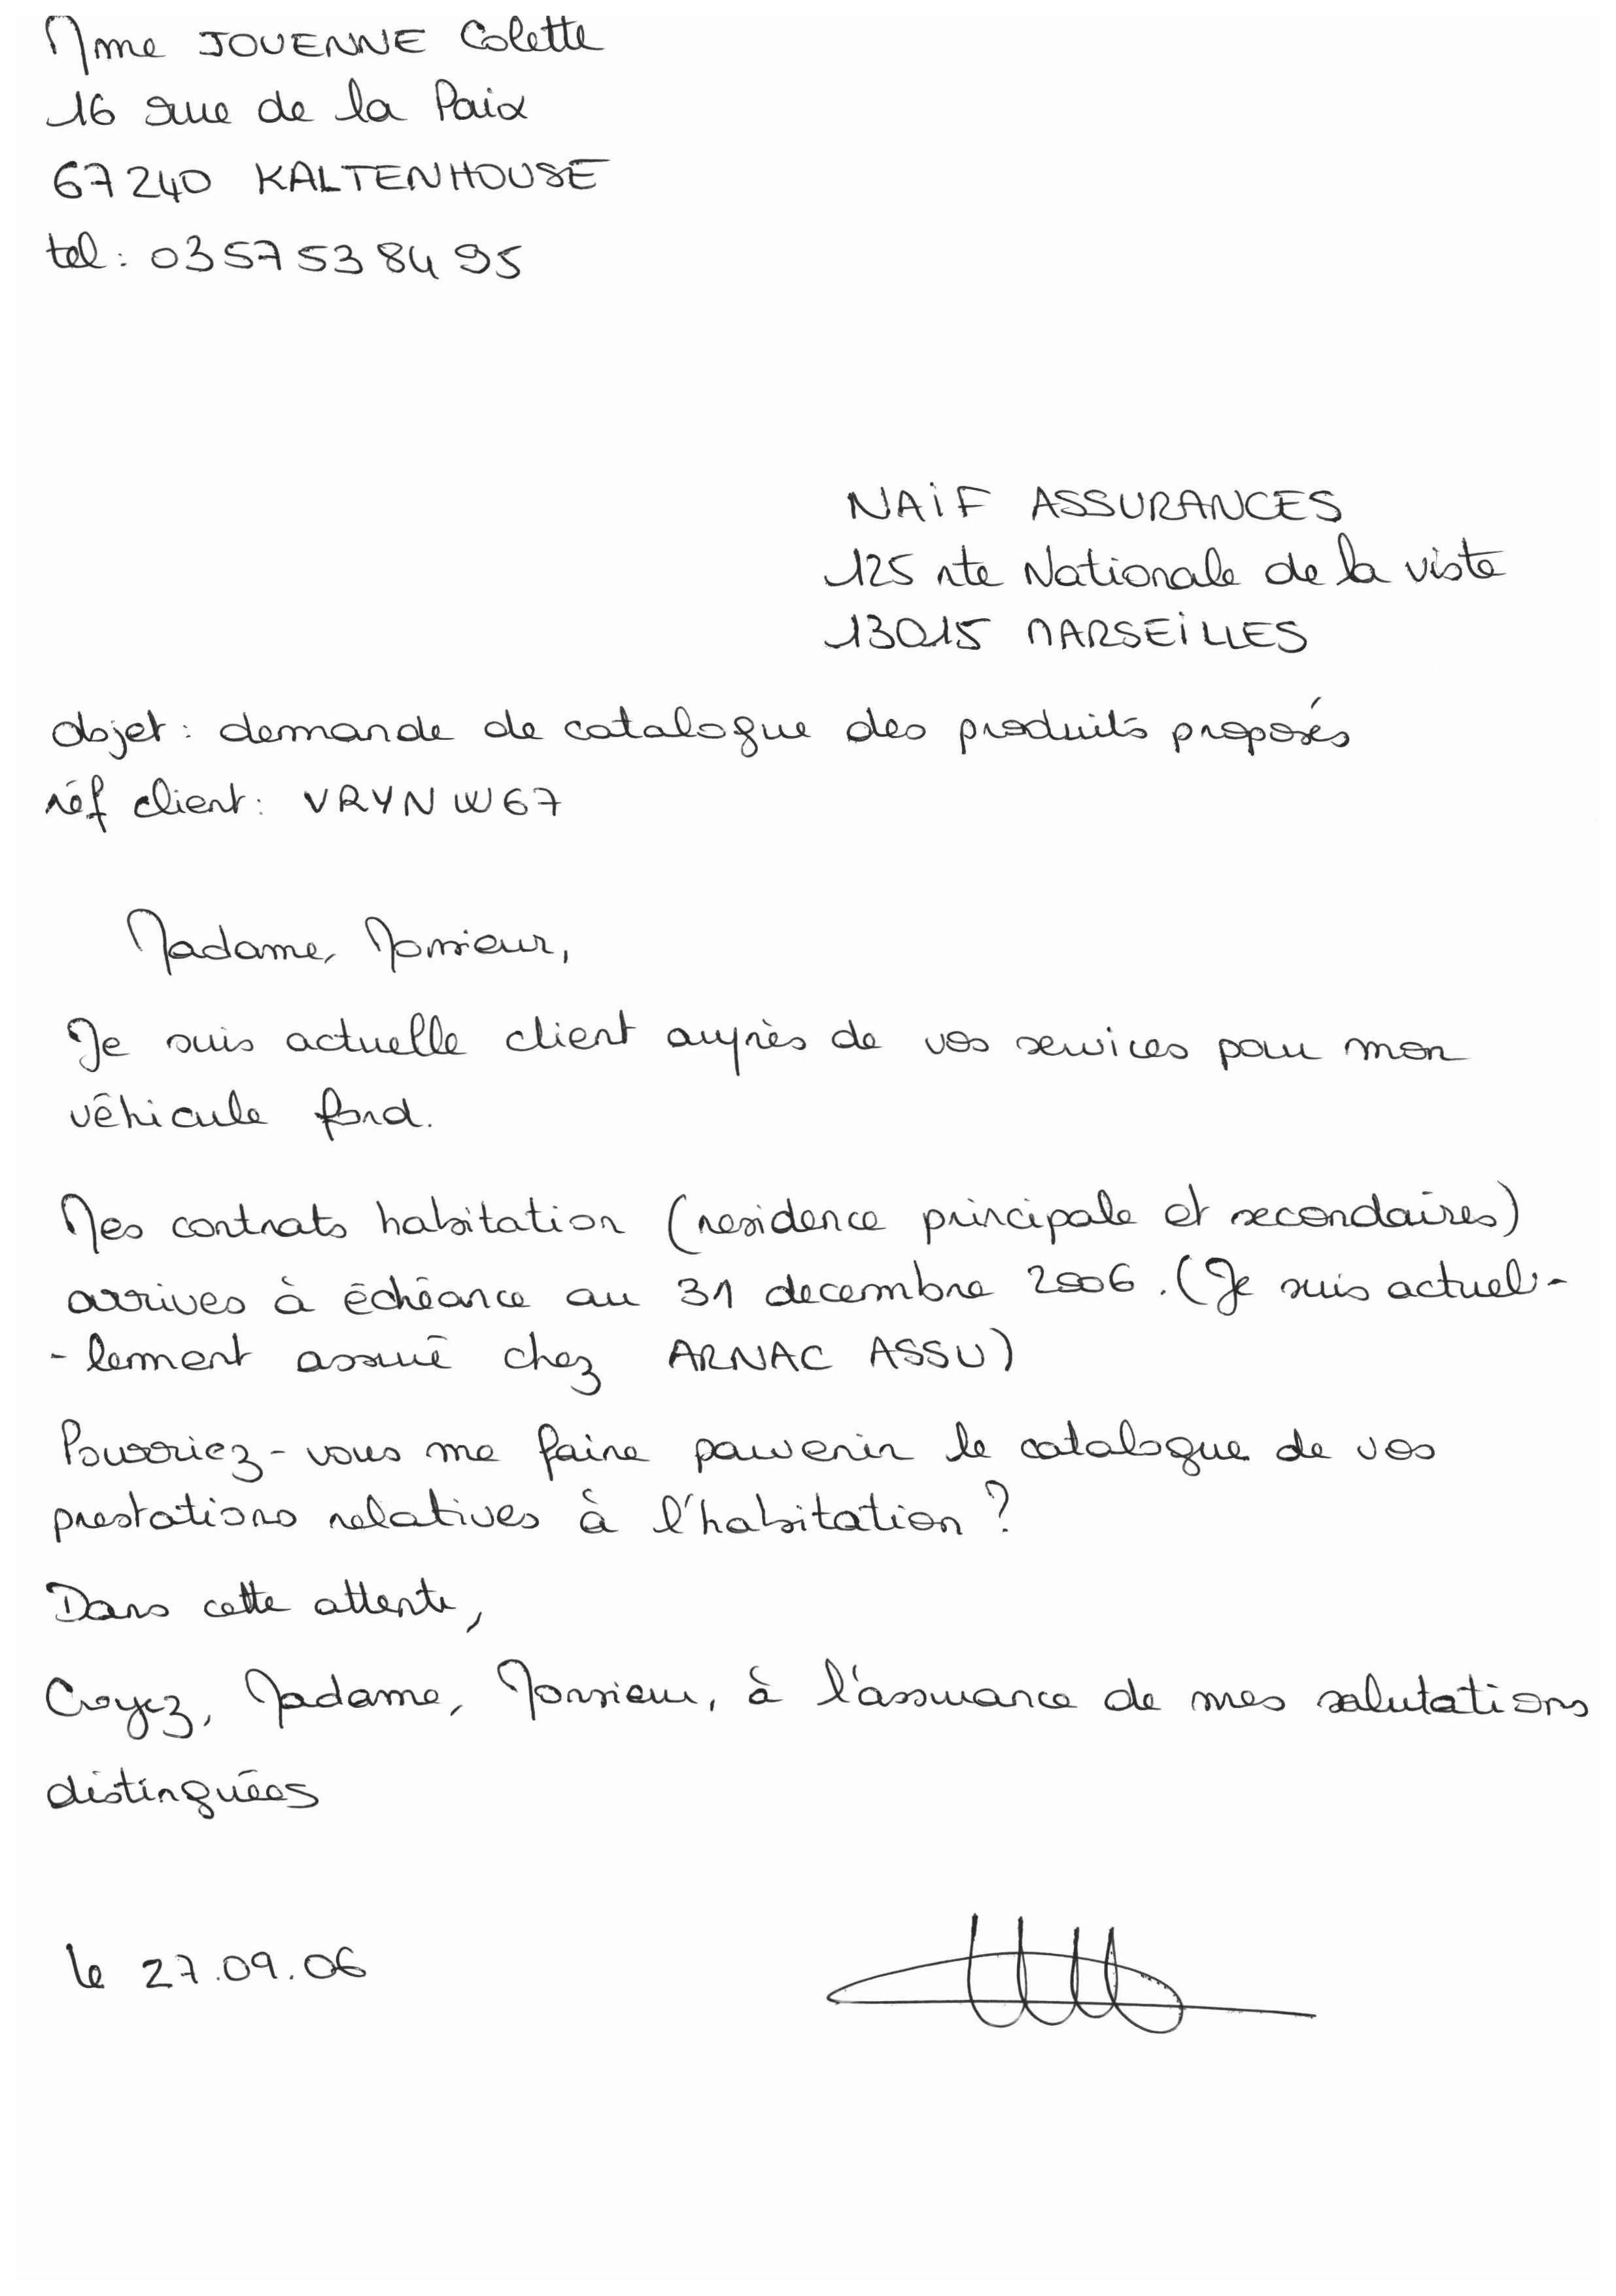 Mme JOUENNE Colette
16 rue de la Paix
67240 KALTENHOUSE
tel: 03 57 53 84 95
NAiF ASSURANCES
125 rte Nationale de la viste
13015 MARSEiLLES
objet: demande de catalogue des produits proposés
réf client: VRYNW67
Madame, Monsieur,
Je suis actuelle client auprès de vos services pour mon
véhicule ford.
Mes contrats habitation (residence principale et secondaires)
arrives à échéance au 31 decembre 2006. (Je suis actuel-
-lement assuré chez ARNAC ASSU)
Pourriez-vous me faire parvenir le catalogue de vos
prestations relatives à l'habitation ?
Dans cette attente,
Croyez, Madame, Monsieur, à l'assurance de mes salutations
distinguées
le 27.09.06